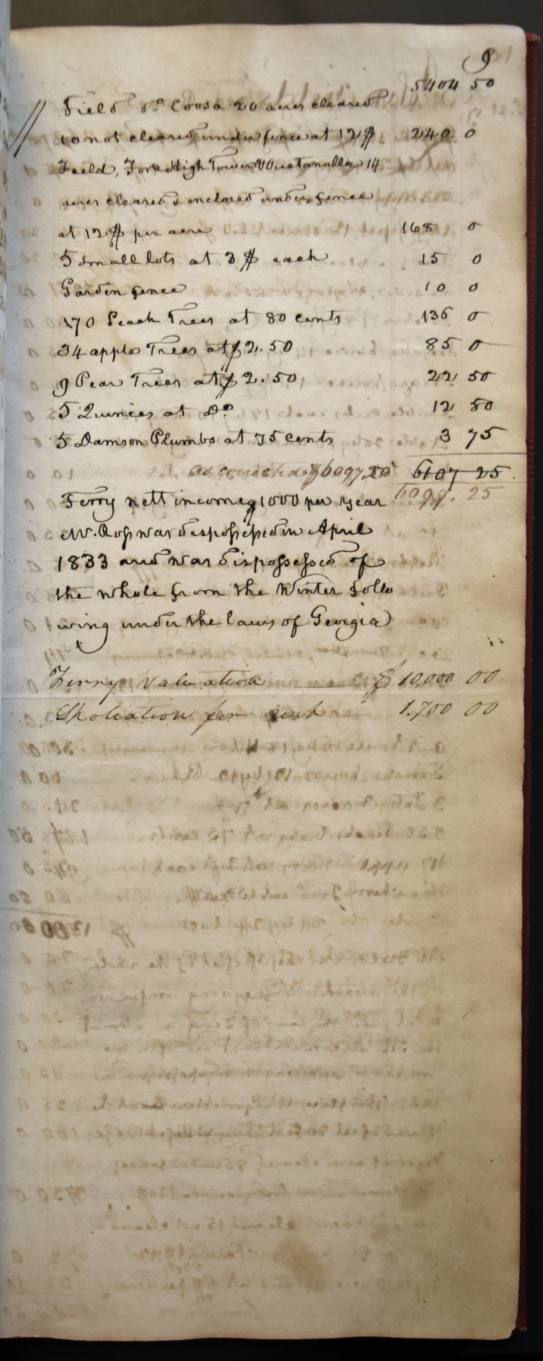 9
5404 50
Field So. Coosa 20 acres cleared
10 not cleared under fence at 12 $ 240 0
Field, Fork High Tower & Oustanalla 14
acres cleared & enclosed under fence
at 12 $ per acre 168 0
5 small lots at 3 $ each 15 0
Garden fence 10 0
170 Peach Trees at 80 cents 136 0
34 apple Trees at $ 2.50 85 0
9 Pear Trees at $ 2.50 22 50
5 Quinces at Do. 12 50
5 Damson Plumbs at 75 cents 3 75
$6097.25 6107 25
6097.25
Ferry nett income $1000 per year
Mr. Ross was dispossessed in April
1833 and was dispossessed of
the whole from the Winter follo
wing under the laws of Georgia
Ferry Valuation $ 10,000 00
Spoliation for rent 1.700 00